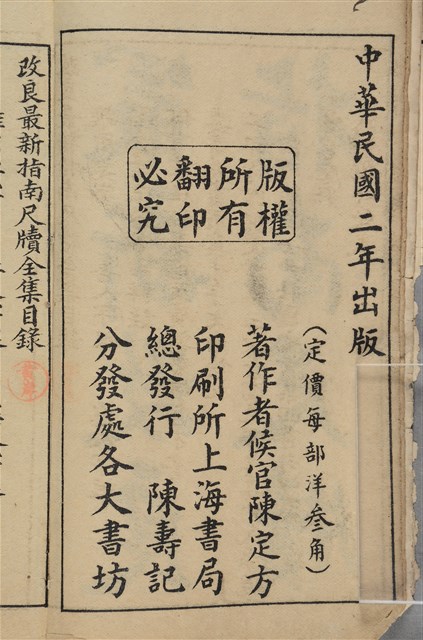 中華民國二年出版
版權
所有
翻印
必究
（定價每部洋叁角）
著作者候官陳定方
印刷所上海書局
總發行 陳壽記
分發處各大書坊
改良最新指南尺牘全集目錄